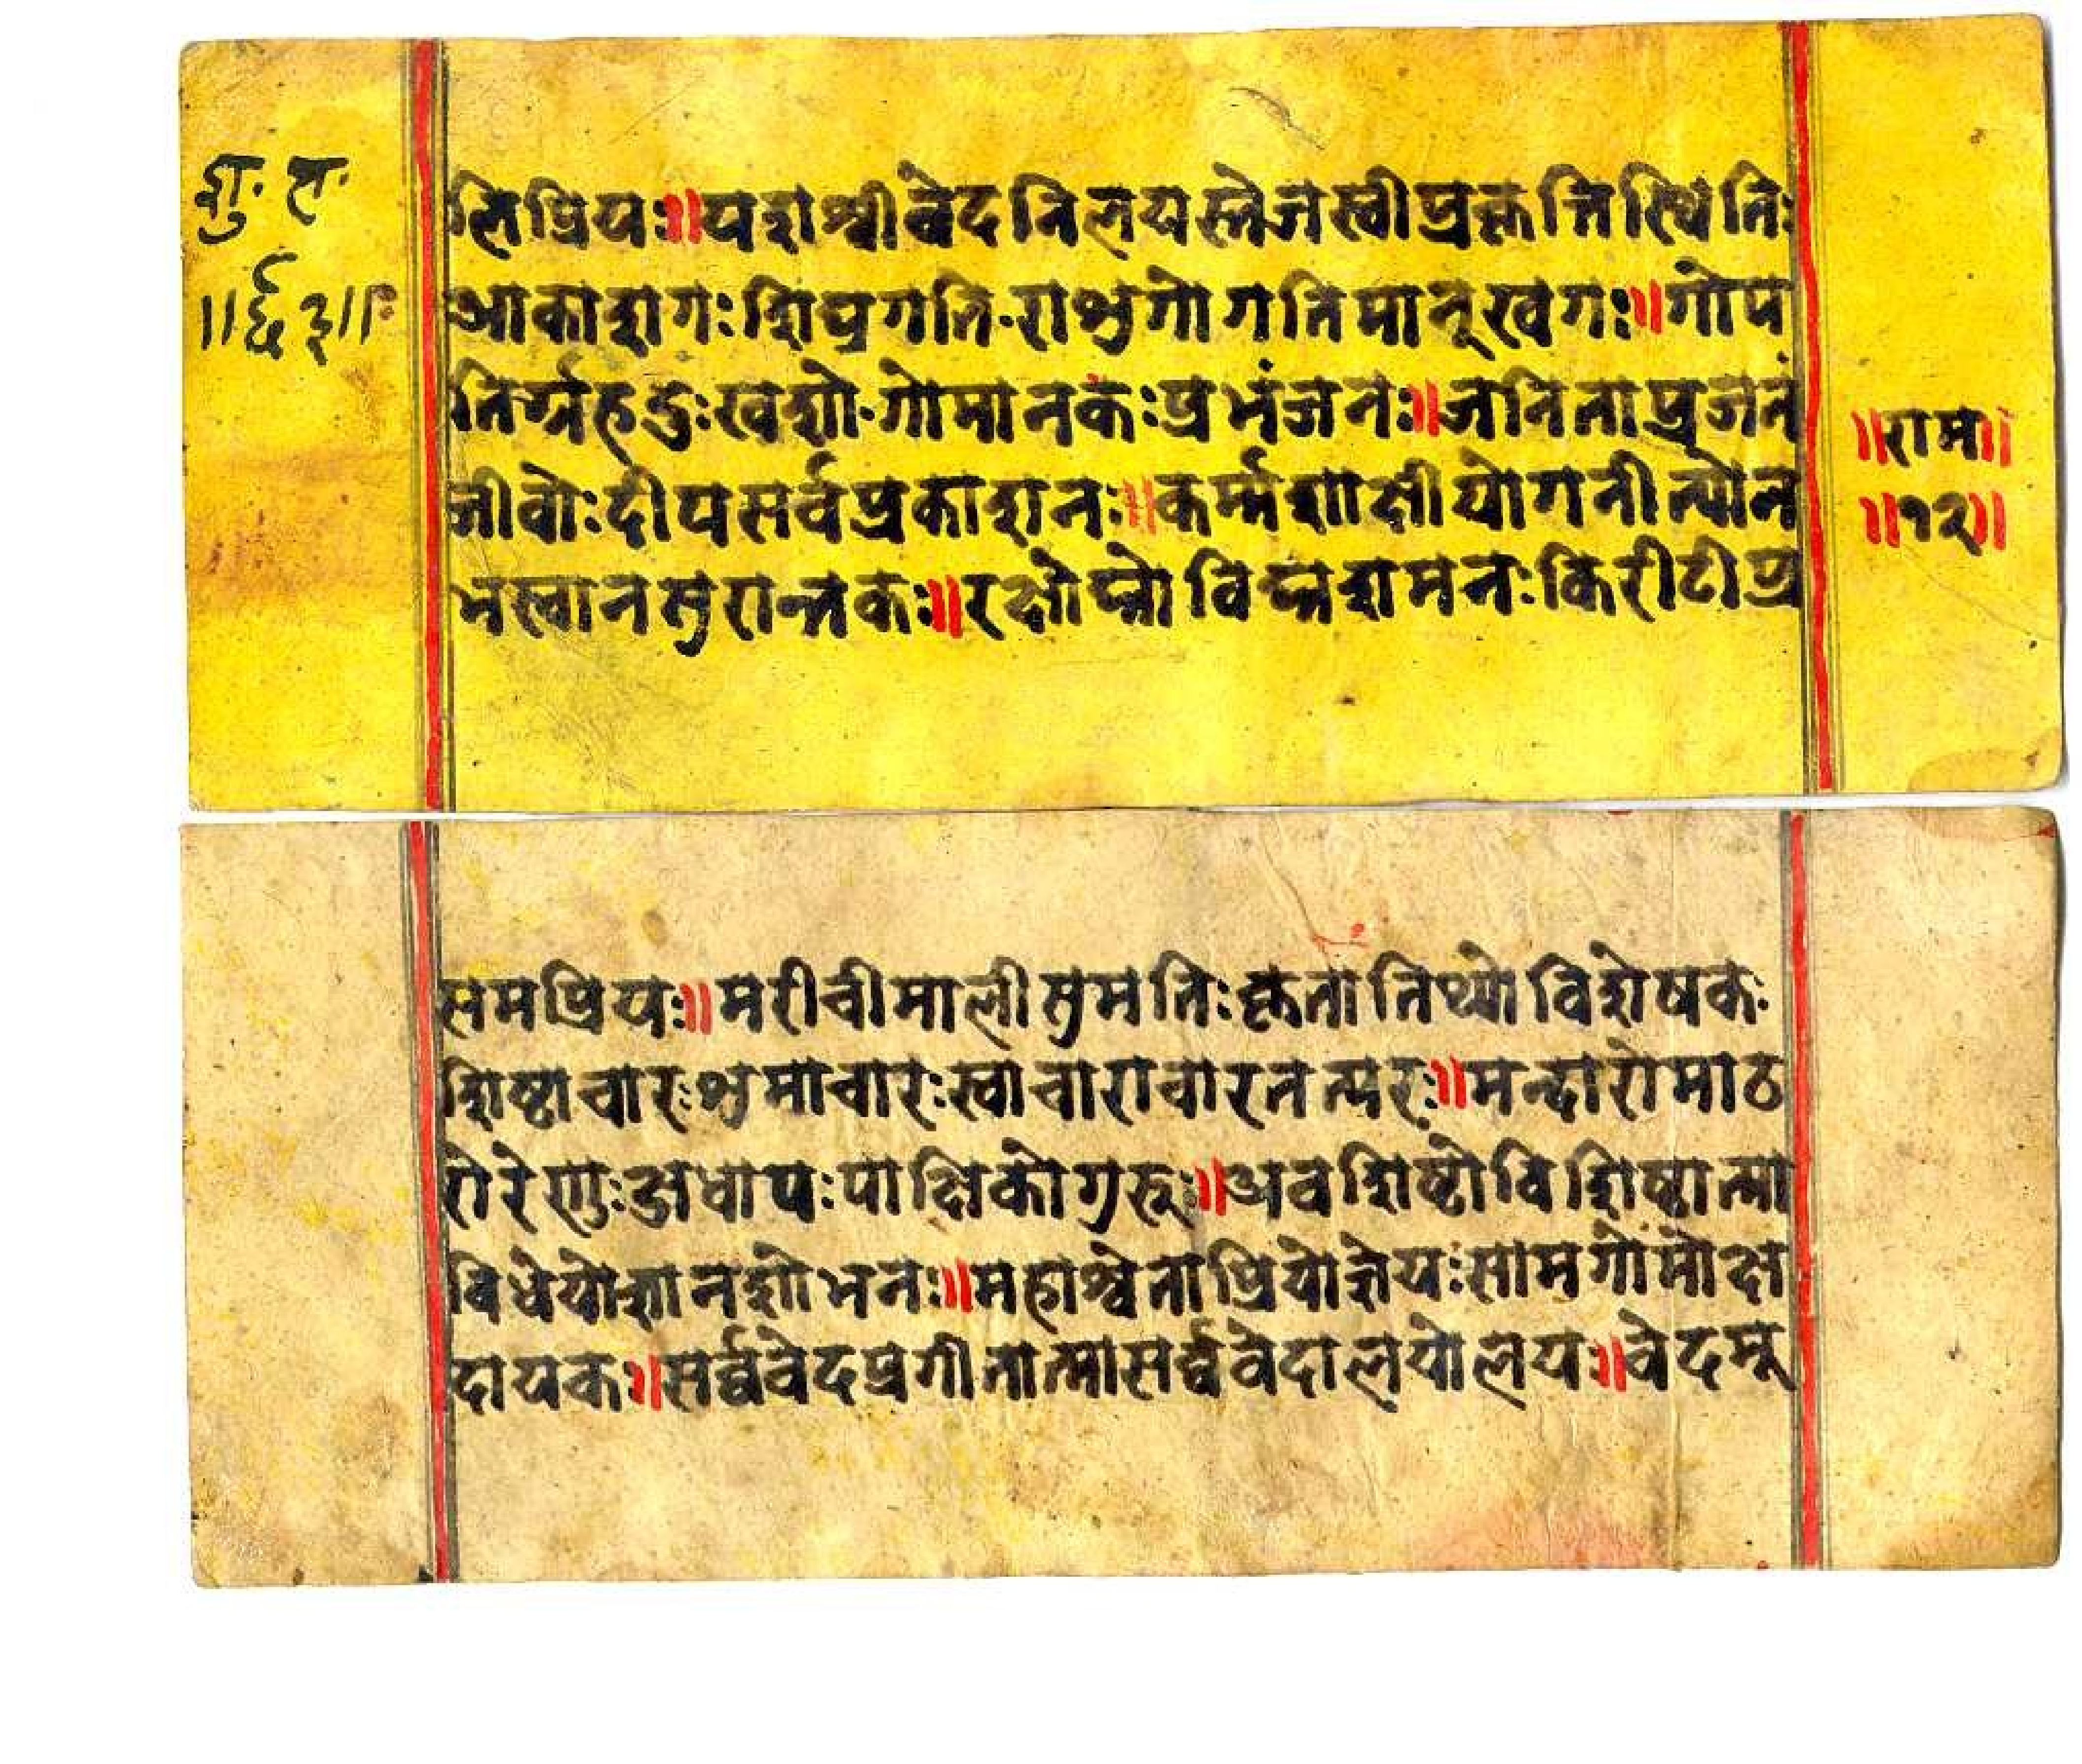 शु. स.
॥६३॥
लिप्रियः॥यशश्वीवेदनिलयस्तेजस्वीप्रकृतिस्थितिः
आकाशगःशिघ्रगति-राभुगोगतिमानूखगः॥गोप
तिर्ग्रहदुःखशो-गोमानकंःप्रभंजनः॥जनिताप्रजनं
जीवोःदीपसर्वप्रकाशनः॥कर्म्मशाक्षीयोगनीत्योन
भस्वानसुरान्तकः॥रक्षोघ्नोविघ्नशमनःकिरीटीप्र
॥राम॥
॥१२॥
समप्रियः॥मरीचीमालीसुमतिःकृतातिथ्योविशेषकः
शिष्टाचारःभुमाचारःस्वाचाराचारतत्परः॥मन्दारोमाठ
रोरेणुःक्षधापःपाक्षिकोगुरूः॥अवशिष्टोविशिष्टात्मा
विधेयोज्ञानशोभनः॥महाश्वेताप्रियोज्ञेयःसामगोमोक्ष
दायकः॥सर्व्ववेदप्रगीतात्मासर्व्ववेदालयोलयः॥वेदमू